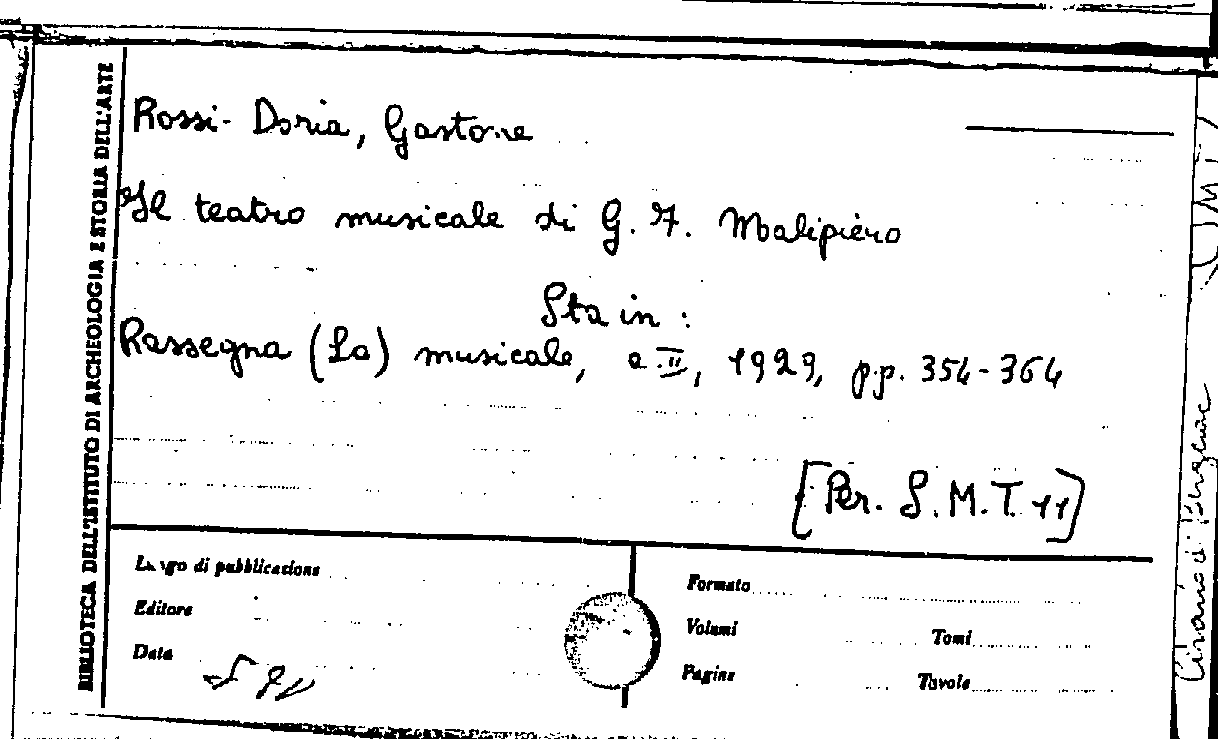 BIBLIOTECA DELL'ISTITUTO DI ARCHEOLOGIA E STORIA DELL'ARTE
Rossi-Doria, Gastone
Il teatro musicale di G. F. Malipiero
Sta in:
Rassegna (La) musicale, a. II, 1929, pp. 354-364
[Per. S.M.T. 11]
Luogo di pubblicazione
Editore
Data
Formato
Volumi Tomi
Pagine Tavole